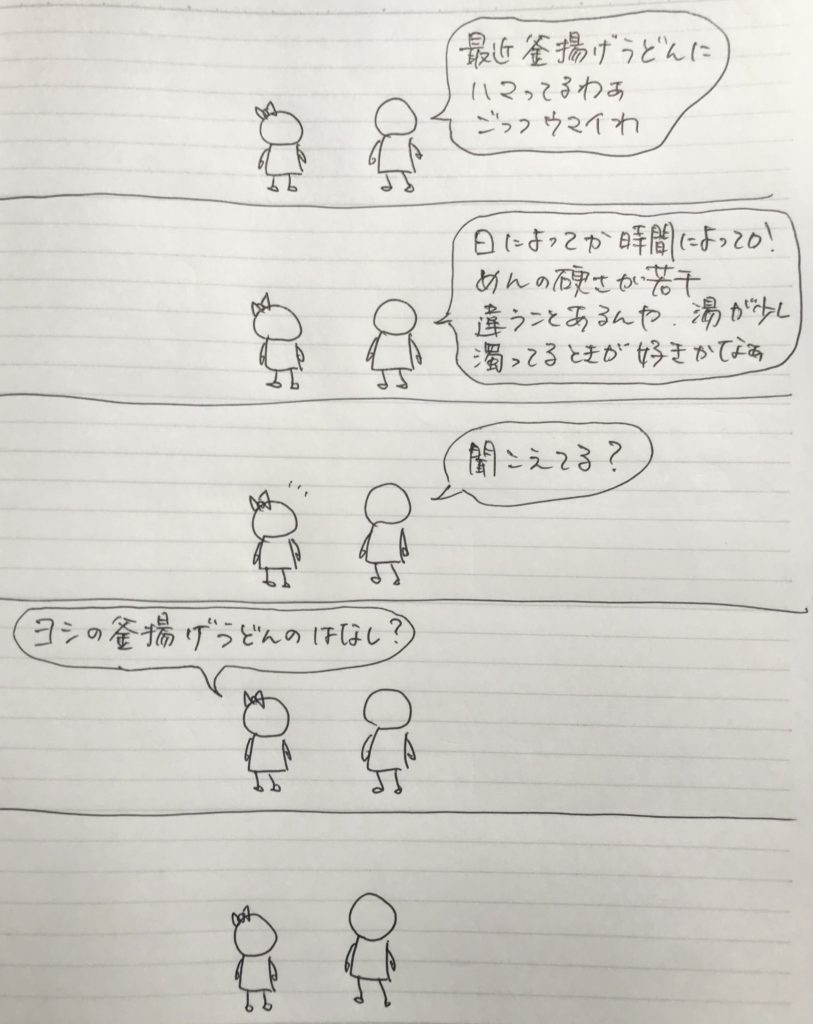 最近釜揚げうどんに
ハマってるわぁ
ごっつウマイわ
日によってか時間によってか!
めんの硬さが若干
違うことあるんや.湯が少し
濁ってるときが好きかなぁ
聞こえてる?
ヨシの釜揚げうどんのはなし?